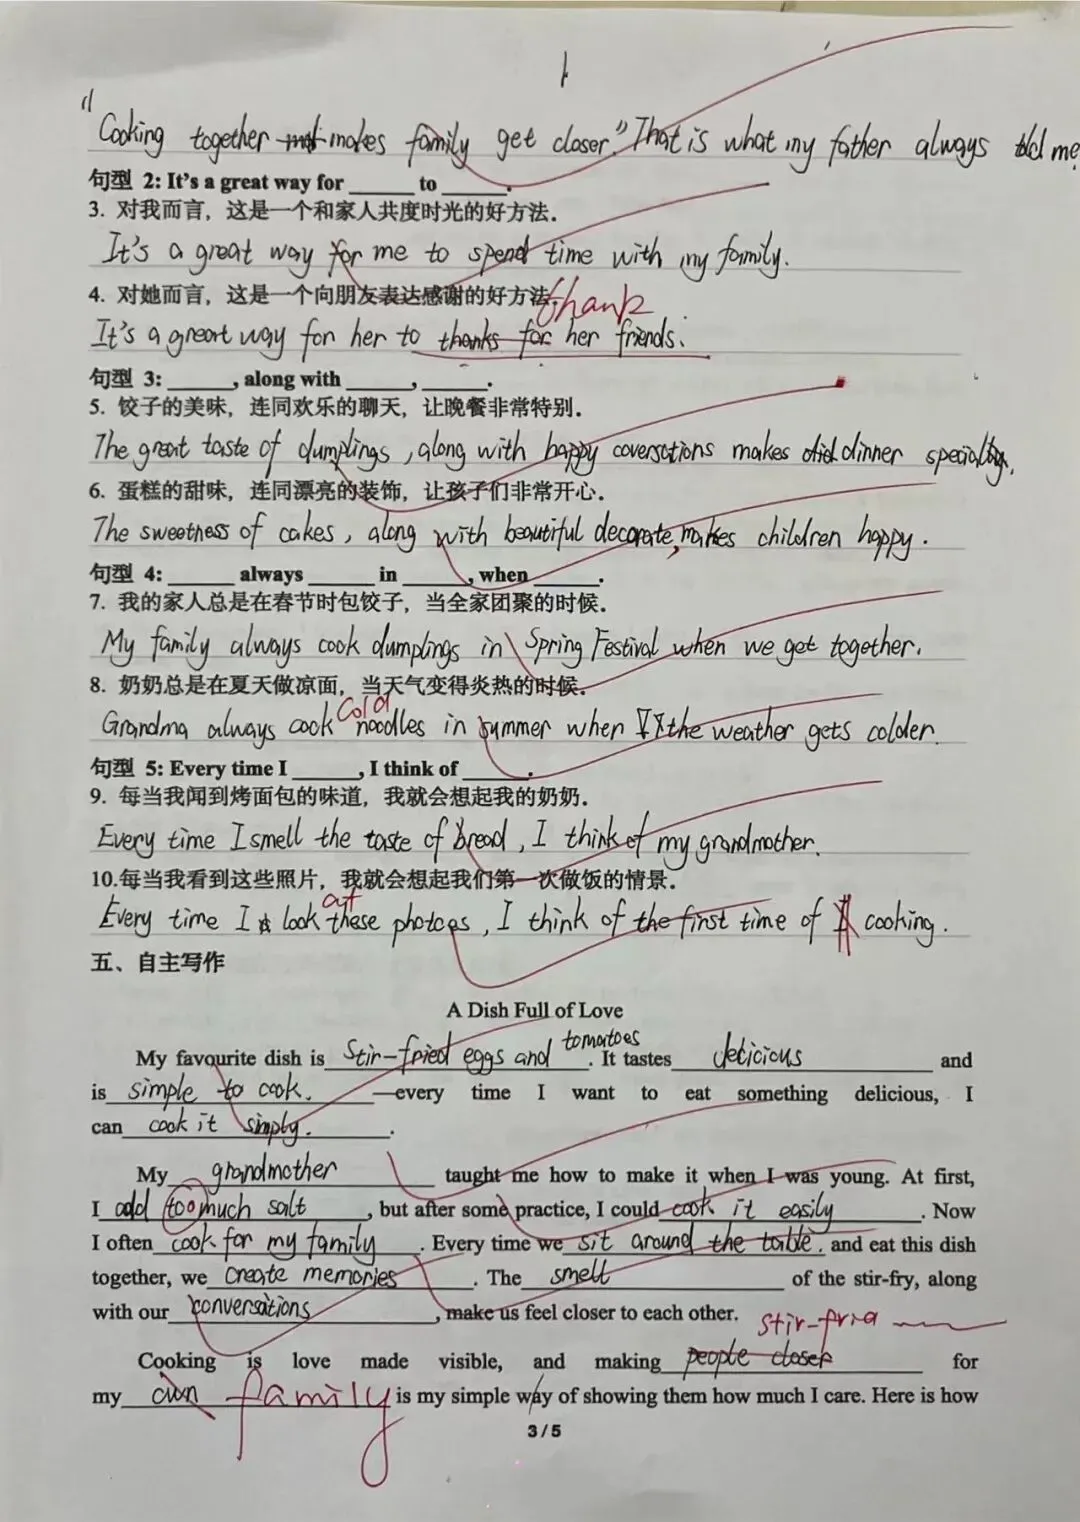 "Cooking together makes family get closer." That is what my father always told me.
句型 2: It's a great way for ______ to ______.
3. 对我而言，这是一个和家人共度时光的好方法.
It's a great way for me to spend time with my family.
4. 对她而言，这是一个向朋友表达感谢的好方法.
thank
It's a great way for her to thanks for her friends.
句型 3: ______, along with ______, ______.
5. 饺子的美味，连同欢乐的聊天，让晚餐非常特别.
The great taste of dumplings, along with happy coversations makes dinner
6. 蛋糕的甜味，连同漂亮的装饰，让孩子们非常开心.
The sweetness of cakes, along with beautiful decorate, makes children happy.
句型 4: ______ always ______ in ______, when ______.
7. 我的家人总是在春节时包饺子，当全家团聚的时候.
My family always cook dumplings in Spring Festival when we get together.
8. 奶奶总是在夏天做凉面，当天气变得炎热的时候.
cold
Grandma always cook noodles in summer when the weather gets colder.
句型 5: Every time I ______, I think of ______.
9. 每当我闻到烤面包的味道，我就会想起我的奶奶.
Every time I smell the taste of bread, I think of my grandmother.
10.每当我看到这些照片，我就会想起我们第一次做饭的情景.
at
Every time I look these photoes, I think of the first time of cooking.
五、自主写作
A Dish Full of Love
My favourite dish is stir-fried eggs and tomatoes. It tastes delicious and
is simple to cook. —every time I want to eat something delicious, I
can cook it simply.
My grandmother taught me how to make it when I was young. At first,
I add too much salt, but after some practice, I could cook it easily. Now
I often cook for my family. Every time we sit around the table, and eat this dish
together, we create memories. The smell of the stir-fry, along
with our conversations, make us feel closer to each other.
stir-fria
Cooking is love made visible, and making people closer for
my own family is my simple way of showing them how much I care. Here is how
3 / 5